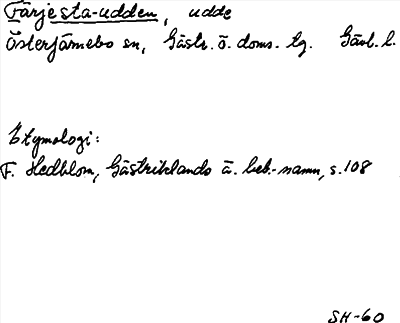 Färjesta-udden, udde
Österfärnebo sn, Gästr. ö. doms. tg. Gävl. l.
Etymologi:
F. Hedblom, Gästriklands ä. beb.-namn, s. 108
SH-60